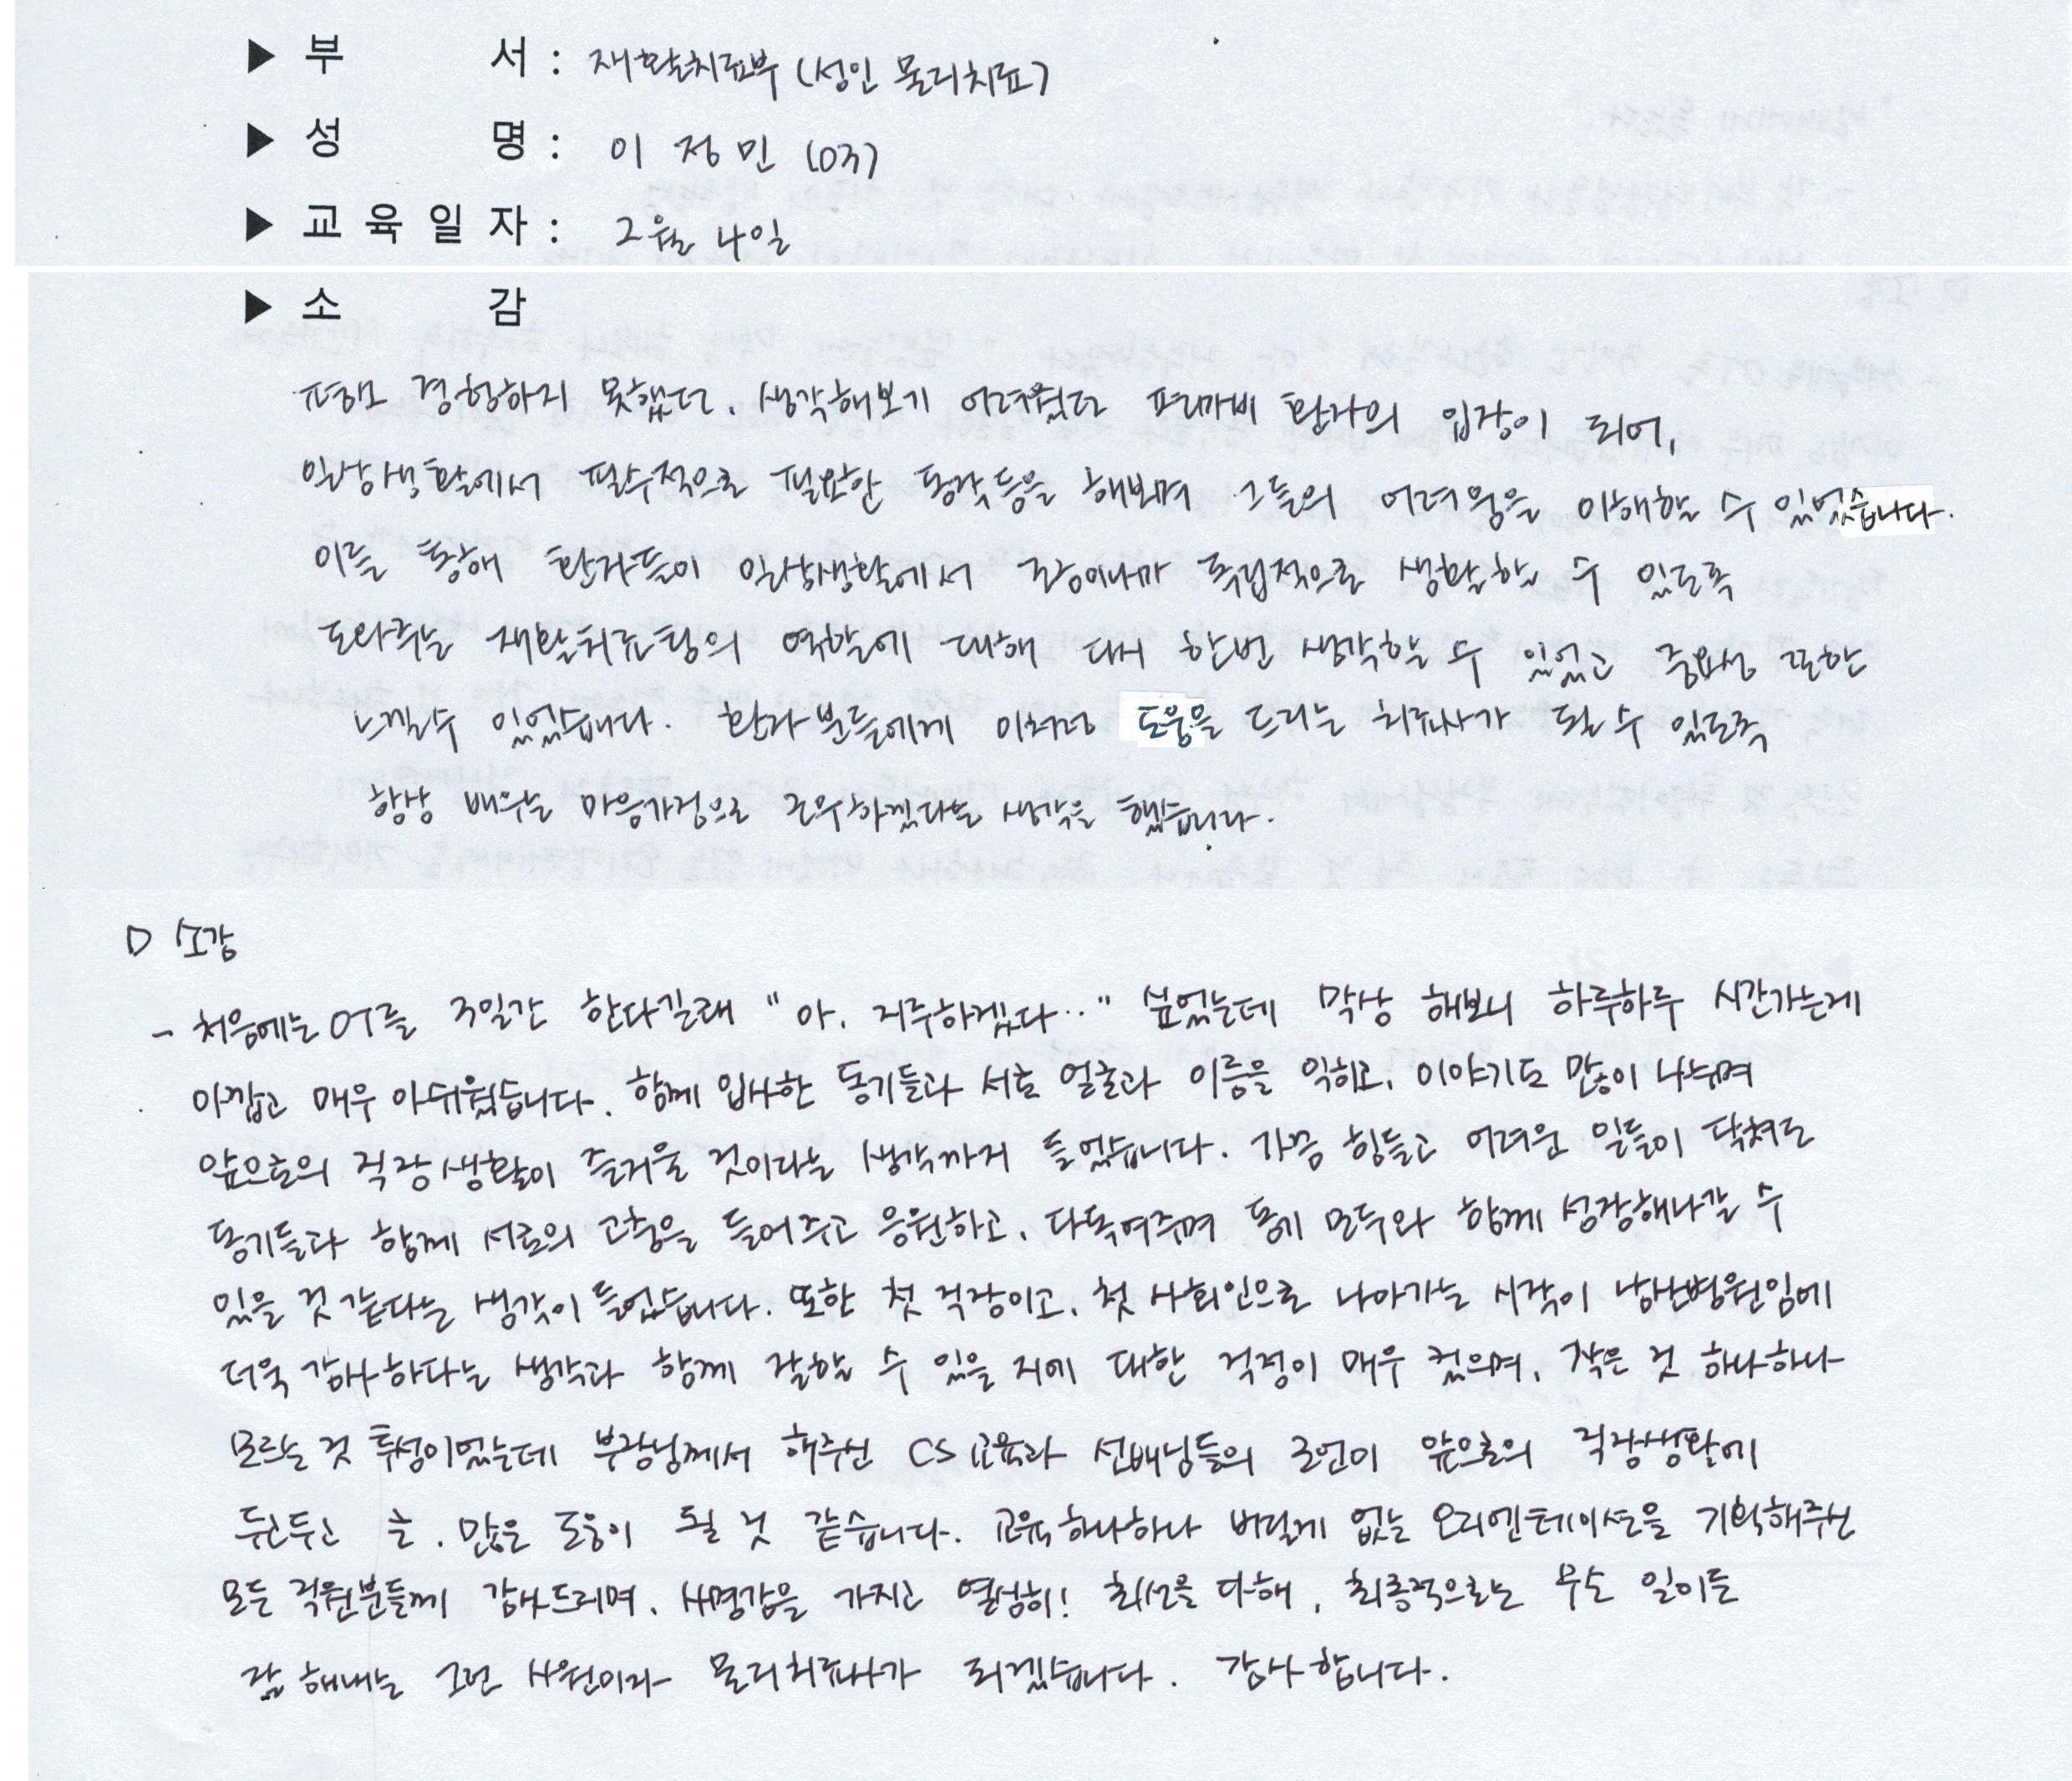 ▶ 부 서 : 재활치료부 (성인 물리치료)
▶ 성 명 : 이 정 민 (03)
▶ 교 육 일 자 : 2월 4일
▶ 소 감
평소 경험하지 못했던, 생각해보기 어려웠던 편마비 환자의 입장이 되어,
일상생활에서 필수적으로 필요한 동작들을 해보며 그들의 어려움을 이해할 수 있었습니다.
이를 통해 환자들이 일상생활에서 조금이나마 독립적으로 생활할 수 있도록
도와주는 재활치료팀의 역할에 대해 다시 한번 생각할 수 있었고 중요성 또한
느낄수 있었습니다. 환자분들에게 이처럼 도움을 드리는 치료사가 될 수 있도록
항상 배우는 마음가짐으로 근무하겠다는 생각을 했습니다.
▷ 소감
- 처음에는 OT를 3일간 한다길래 "아, 지루하겠다.." 싶었는데 막상 해보니 하루하루 시간가는게
아깝고 매우 아쉬웠습니다. 함께 입사한 동기들과 서로 얼굴과 이름을 익히고, 이야기도 많이 나누며
앞으로의 직장생활이 즐거울 것이라는 생각까지 들었습니다. 가끔 힘들고 어려운 일들이 닥쳐도
동기들과 함께 서로의 고충을 들어주고 응원하고, 다독여주며 동기 모두와 함께 성장해나갈 수
있을 것 같다는 생각이 들었습니다. 또한 첫 직장이고, 첫 사회인으로 나아가는 시작이 남산병원임에
더욱 감사하다는 생각과 함께 잘할 수 있을 지에 대한 걱정이 매우 컸으며, 작은 것 하나하나
모르는 것 투성이었는데 부장님께서 해주신 CS교육과 선배님들의 조언이 앞으로의 직장생활에
두고두고 큰, 많은 도움이 될 것 같습니다. 교육 하나하나 버릴게 없는 오리엔테이션을 기획해주신
모든 직원분들께 감사드리며, 사명감을 가지고 열심히! 최선을 다해, 최종적으로는 무슨 일이든
잘 해내는 그런 사원이자 물리치료사가 되겠습니다. 감사합니다.